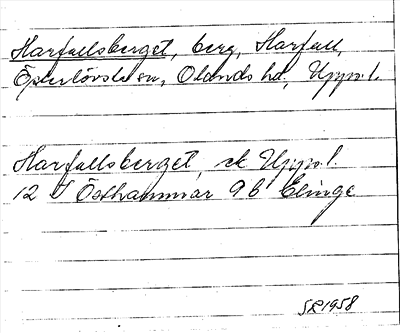 Harfallsberget, berg, Harfall,
Österlövsta sn, Olands hd, Uppl.
Harfallsberget, ek Uppl.
12 I Östhammar 9b Elinge
SR 1958